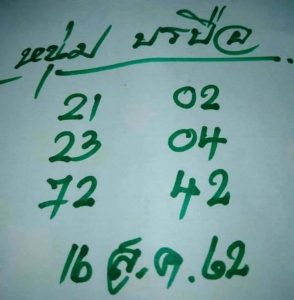 หนุ่ม บรบือ
21 02
23 04
72 42
16 ส.ค. 62